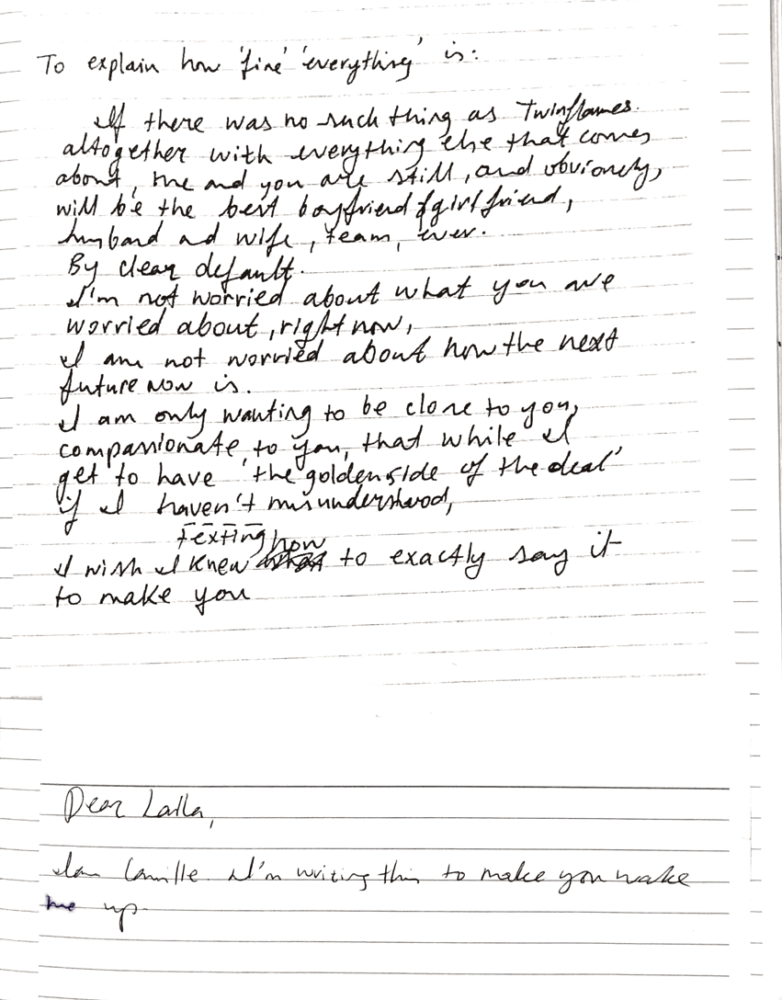 To explain how 'fine' 'everything' is:
If there was no such thing as Twinflames
altogether with everything else that comes
about, me and you are still, and obviously,
will be the best boyfriend & girlfriend,
husband ad wife, team, ever.
By clear default.
I'm not worried about what you are
worried about, right now,
I am not worried about how the next
future now is.
I am only wanting to be close to you,
compassionate to you, that while I
get to have 'the golden side of the deal'
if I haven't misunderstood,
Texting how
I wish I knew to exactly say it
to make you
Dear Lalla,
I am Camille I'm writing this to make you wake
me up.